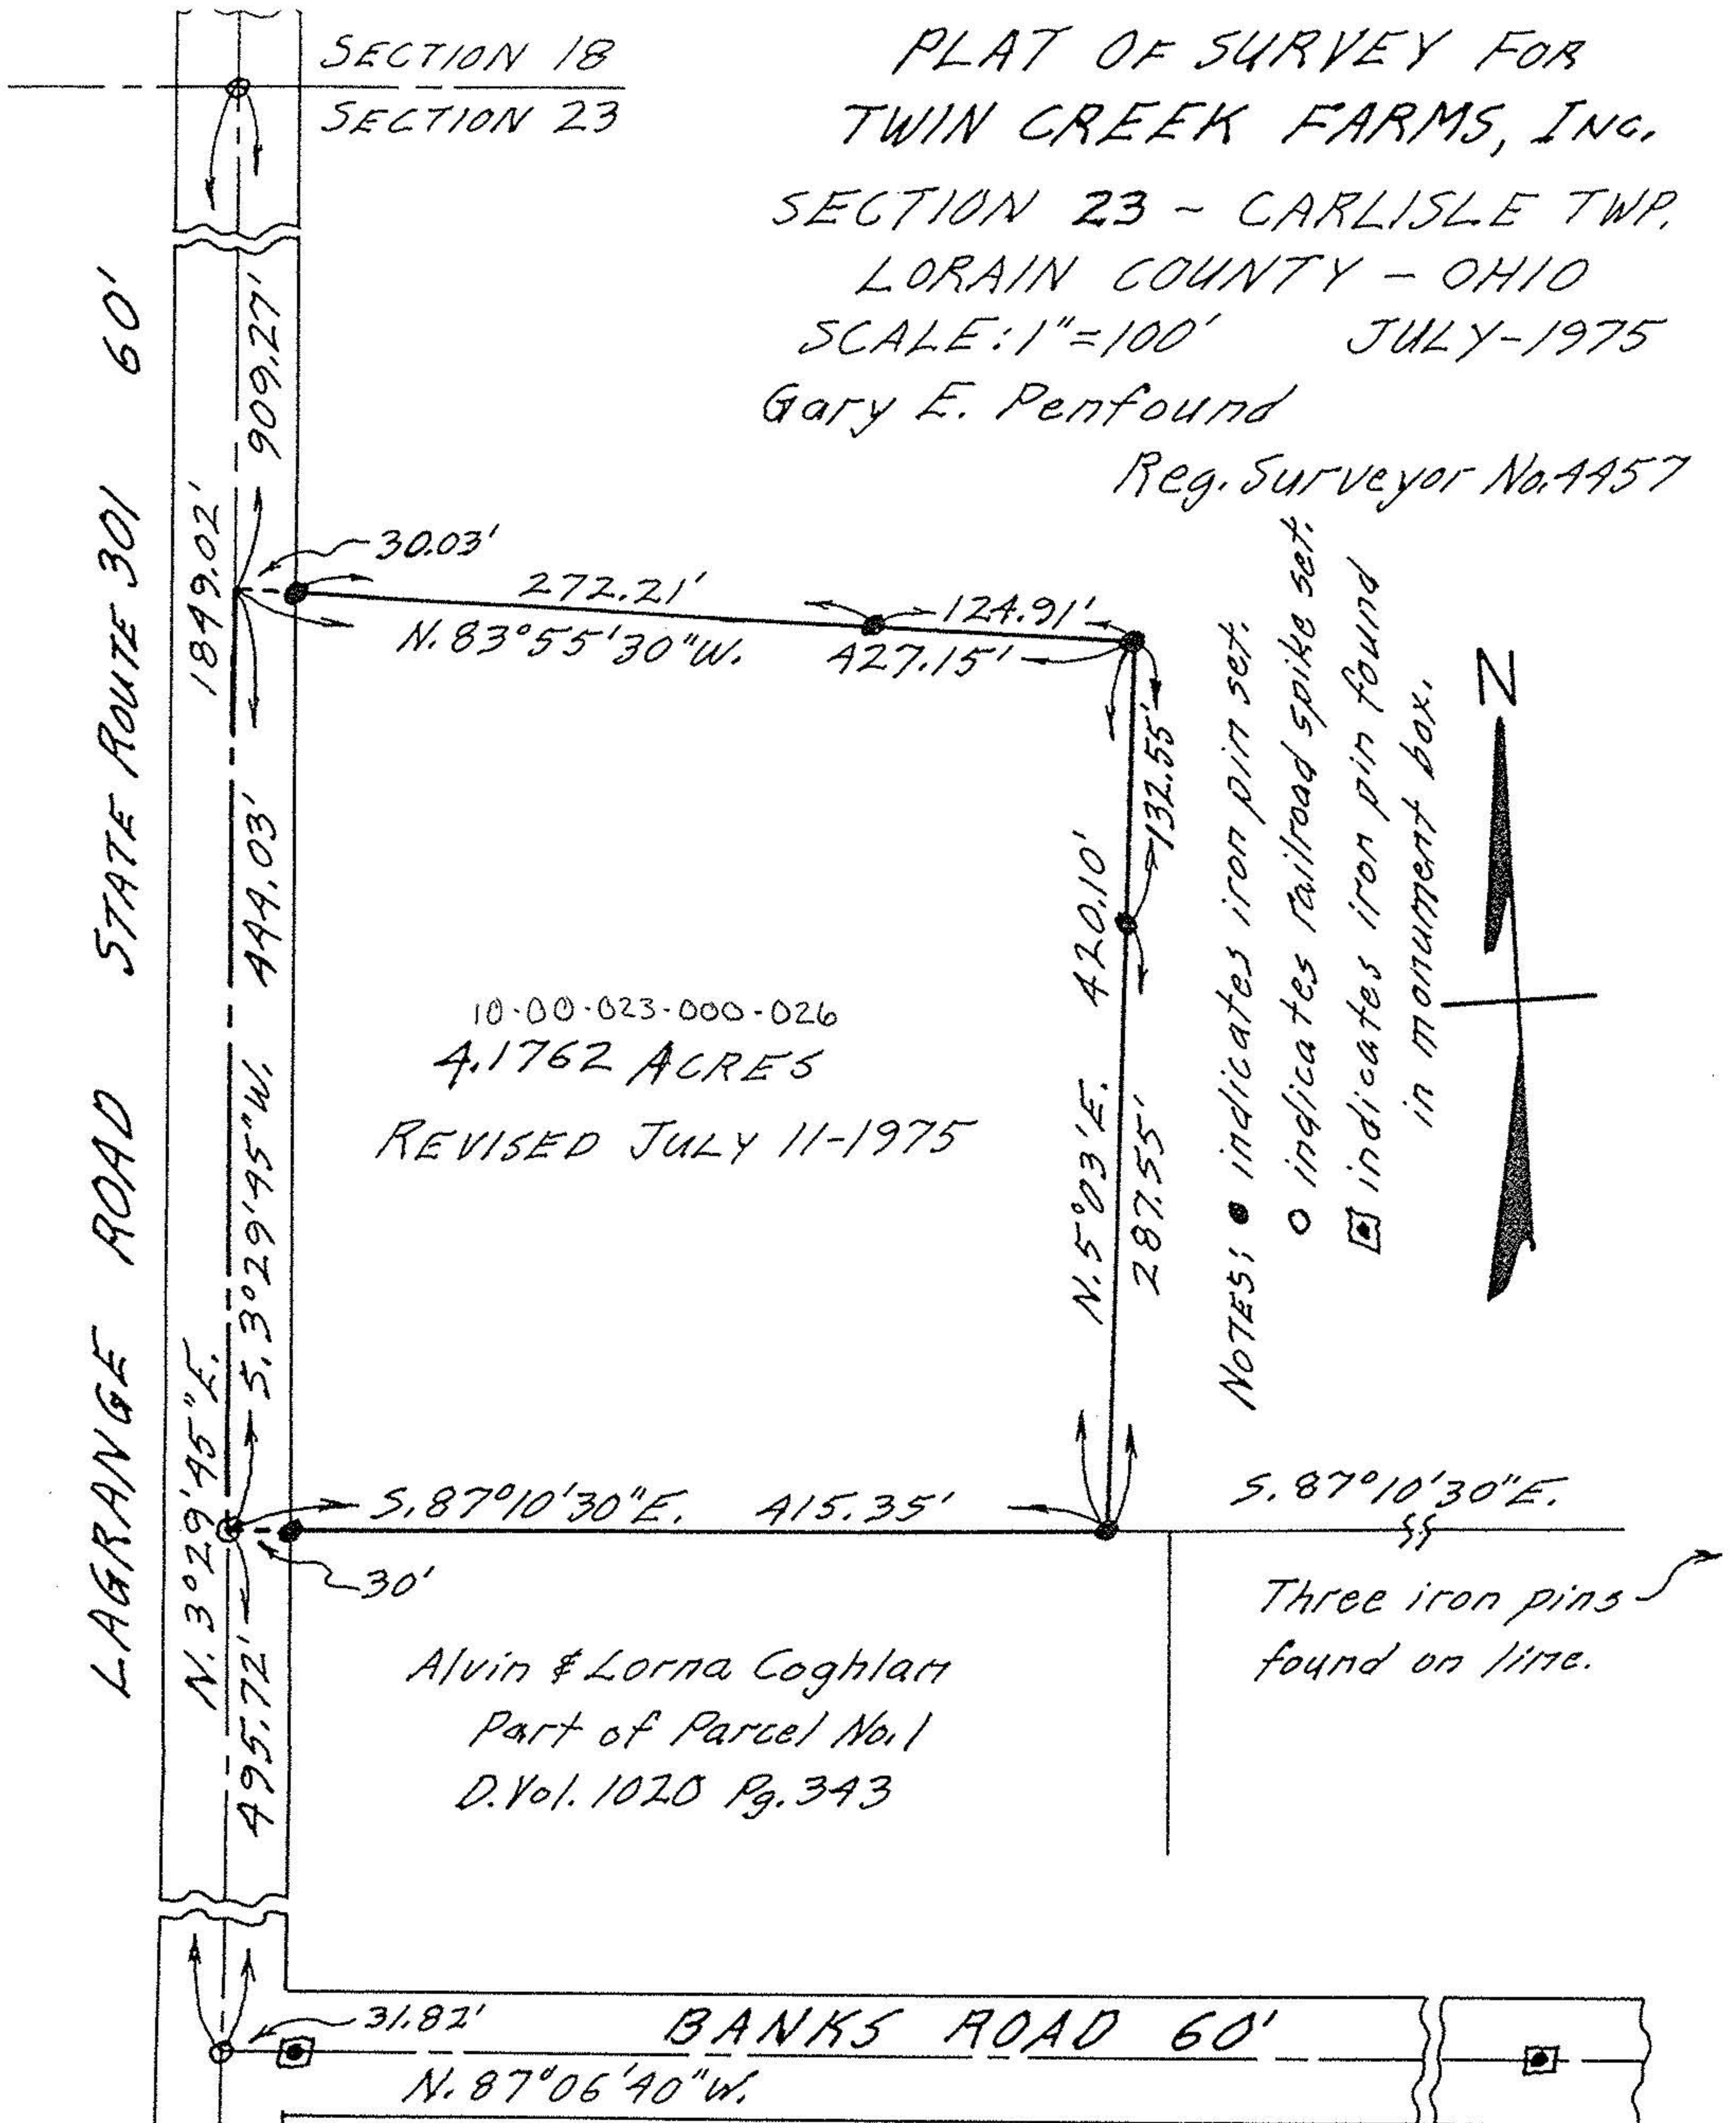 SECTION 18
SECTION 23
PLAT OF SURVEY FOR
TWIN CREEK FARMS, INC.
SECTION 23 - CARLISLE TWP.
LORAIN COUNTY - OHIO
SCALE: 1"=100' JULY-1975
Gary E. Penfound
Reg. Surveyor No. 4457
LAGRANGE ROAD STATE ROUTE 301 60'
N. 3°29'45"E. 1849.02'
909.27'
S. 3°29'45"W. 444.03'
495.72'
30.03'
272.21'
124.91'
N. 83°55'30"W. 427.15'
132.55'
N. 5°03'E. 420.10'
287.55'
10-00-023-000-026
4.1762 ACRES
REVISED JULY 11-1975
NOTES: ● indicates iron pin set.
○ indicates railroad spike set.
▣ indicates iron pin found
in monument box.
N
S. 87°10'30"E. 415.35'
S. 87°10'30"E.
30'
Three iron pins
found on line.
Alvin & Lorna Coghlan
Part of Parcel No. 1
D. Vol. 1020 Pg. 343
31.82'
BANKS ROAD 60'
N. 87°06'40"W.